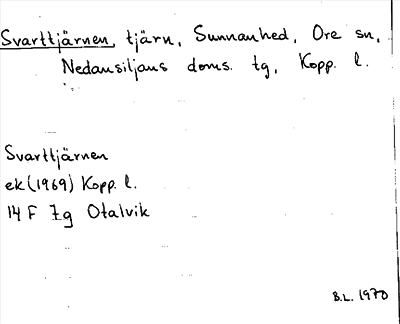 Svarttjärnen, tjärn, Sunnanhed, Ore sn,
Nedansiljans doms. tg, Kopp. l.
Svarttjärnen
ek (1969) Kopp. l.
14 F 7g Otalvik
B.L. 1970